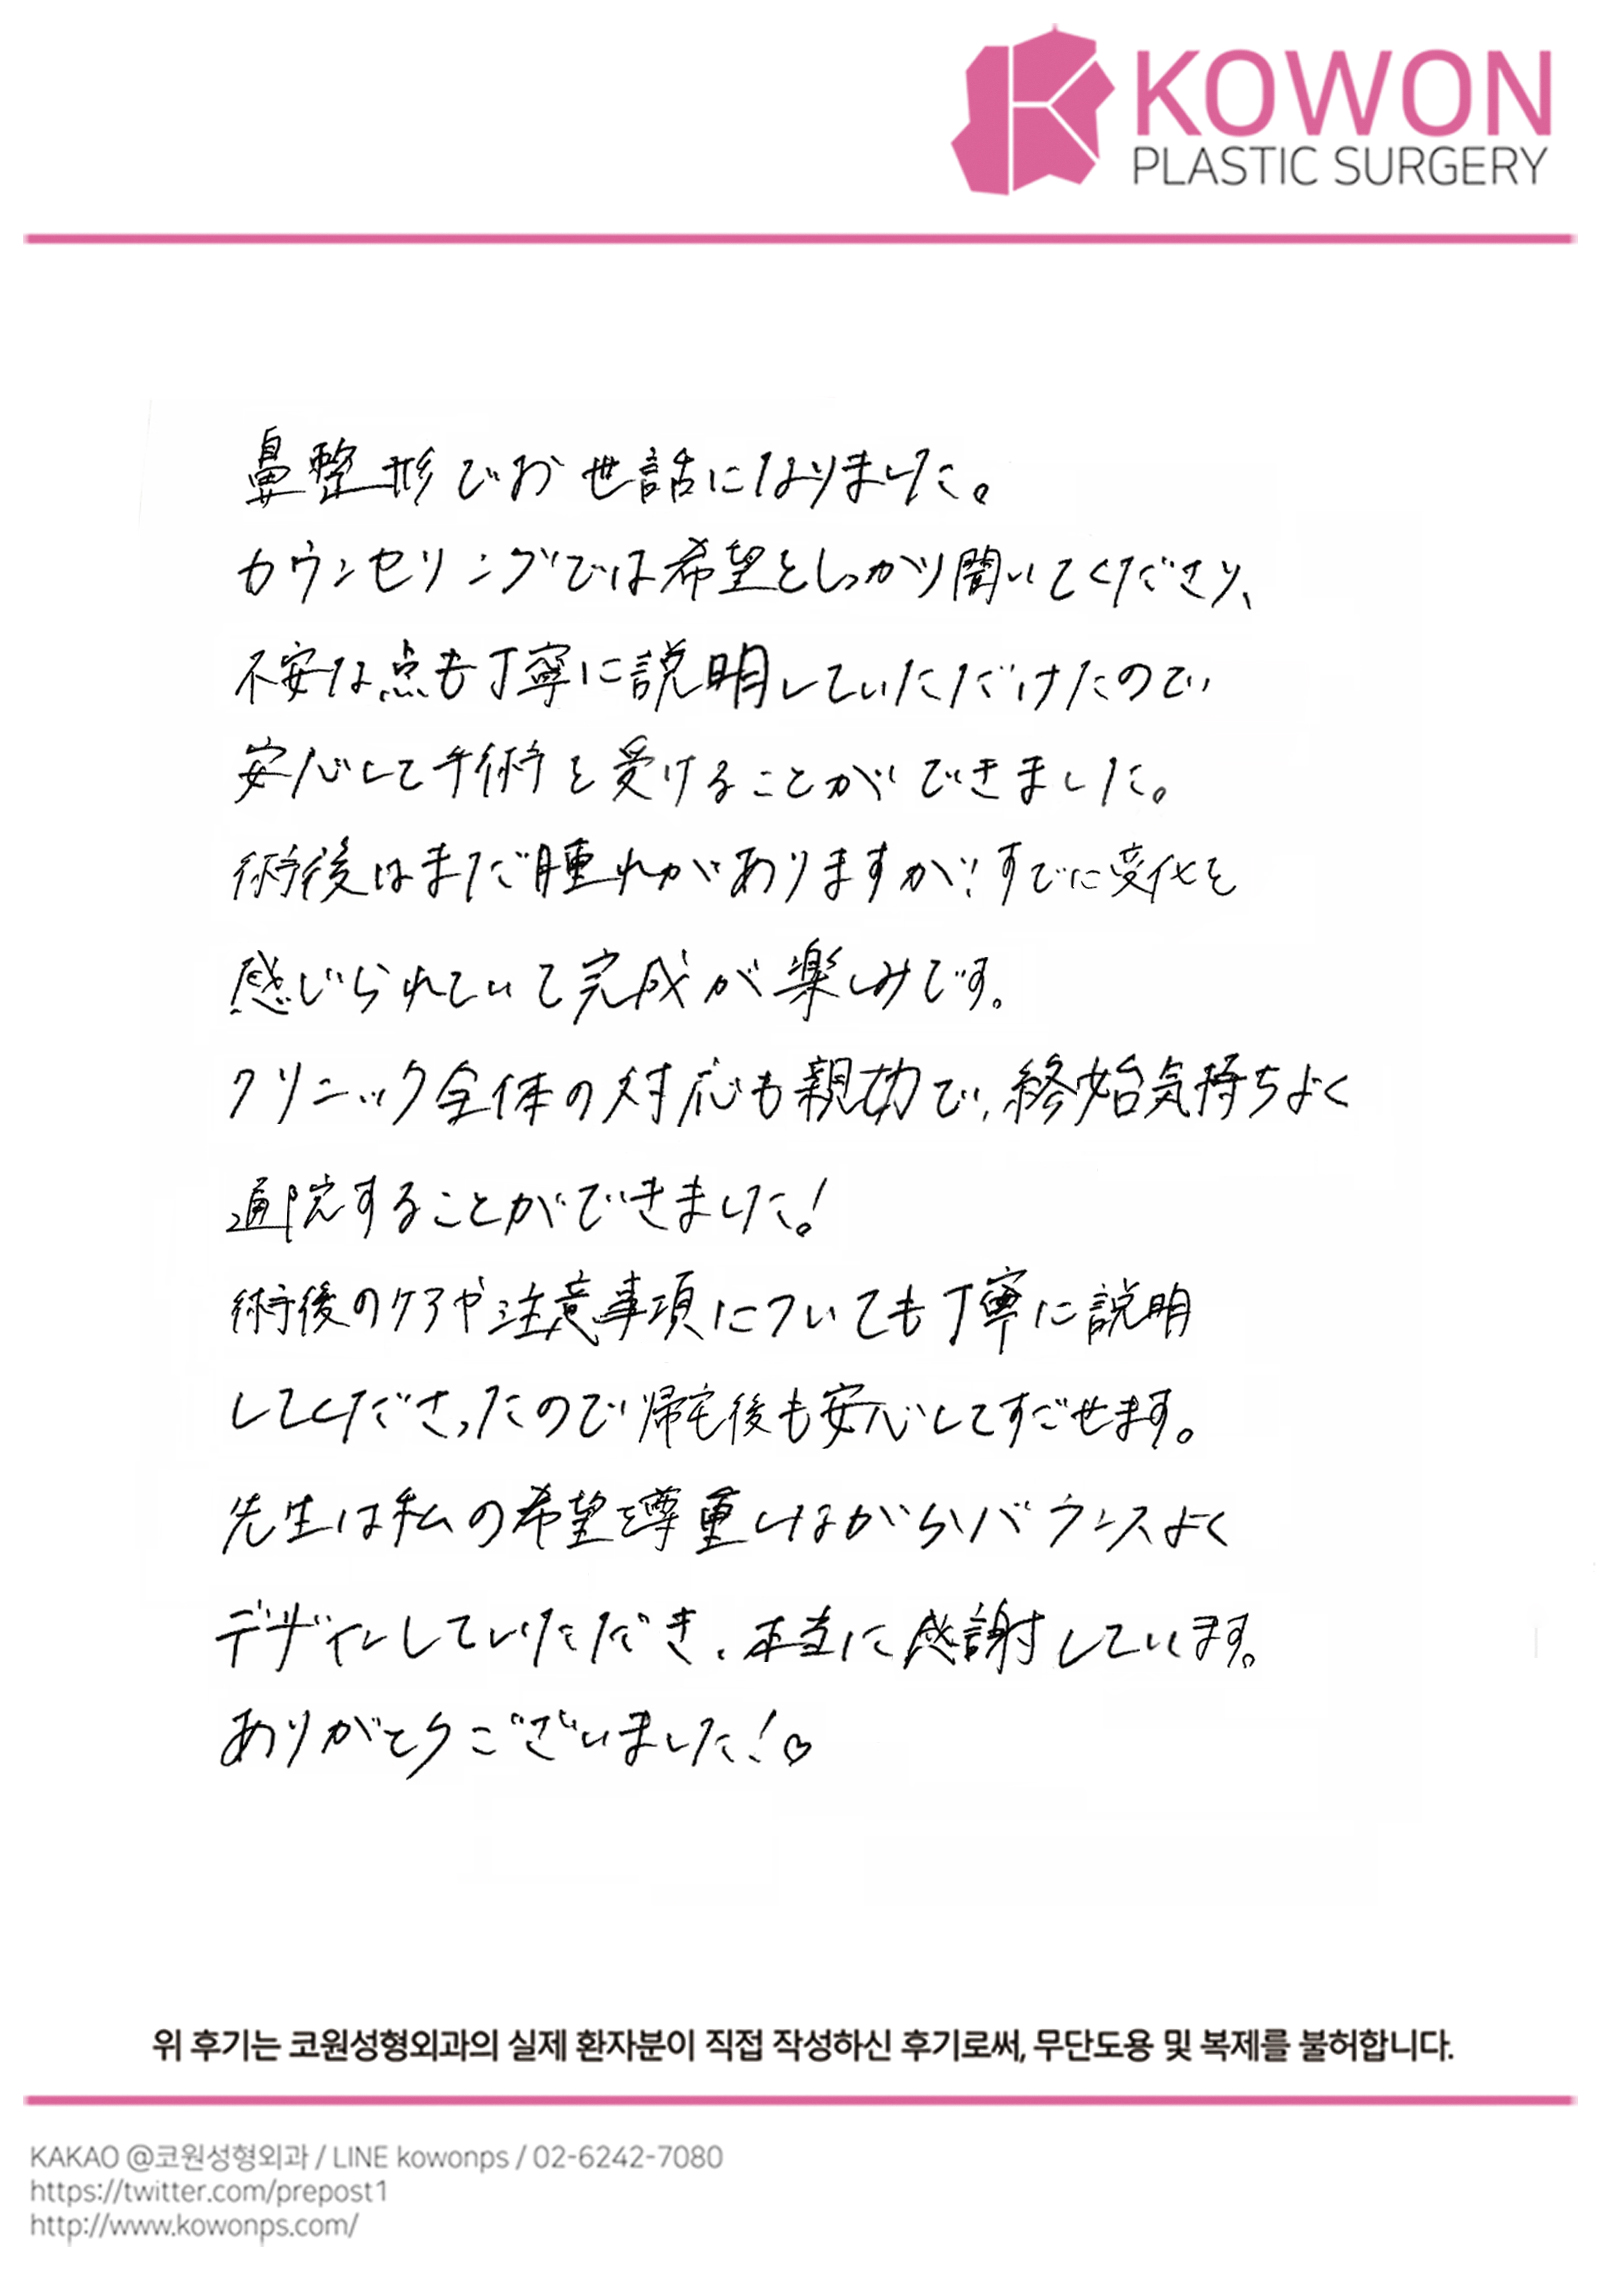 KOWON
PLASTIC SURGERY
鼻整形でお世話になりました。
カウンセリングでは希望をしっかり聞いてくださり、
不安な点も丁寧に説明していただけたので
安心して手術を受けることができました。
術後はまだ腫れがありますが、すでに変化を
感じられていて完成が楽しみです。
クリニック全体の対応も親切で、終始気持ちよく
通院することができました!
術後のケアや注意事項についても丁寧に説明
してくださったので帰宅後も安心してすごせます。
先生は私の希望を尊重しながらバランスよく
デザインしていただき、本当に感謝しています。
ありがとうございました!♡
위 후기는 코원성형외과의 실제 환자분이 직접 작성하신 후기로써, 무단도용 및 복제를 불허합니다.
KAKAO @코원성형외과 / LINE kowonps / 02-6242-7080
https://twitter.com/prepost1
http://www.kowonps.com/